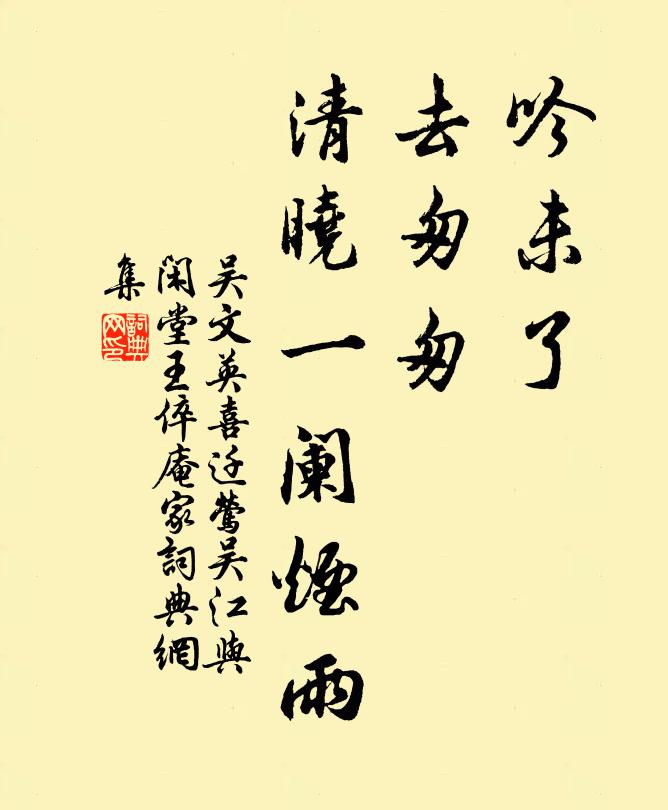 吟未了
去匆匆
清曉一闌煙雨
吴文英喜迁莺吴江與
閑堂王倅庵家詞典網
集
詞典
网印